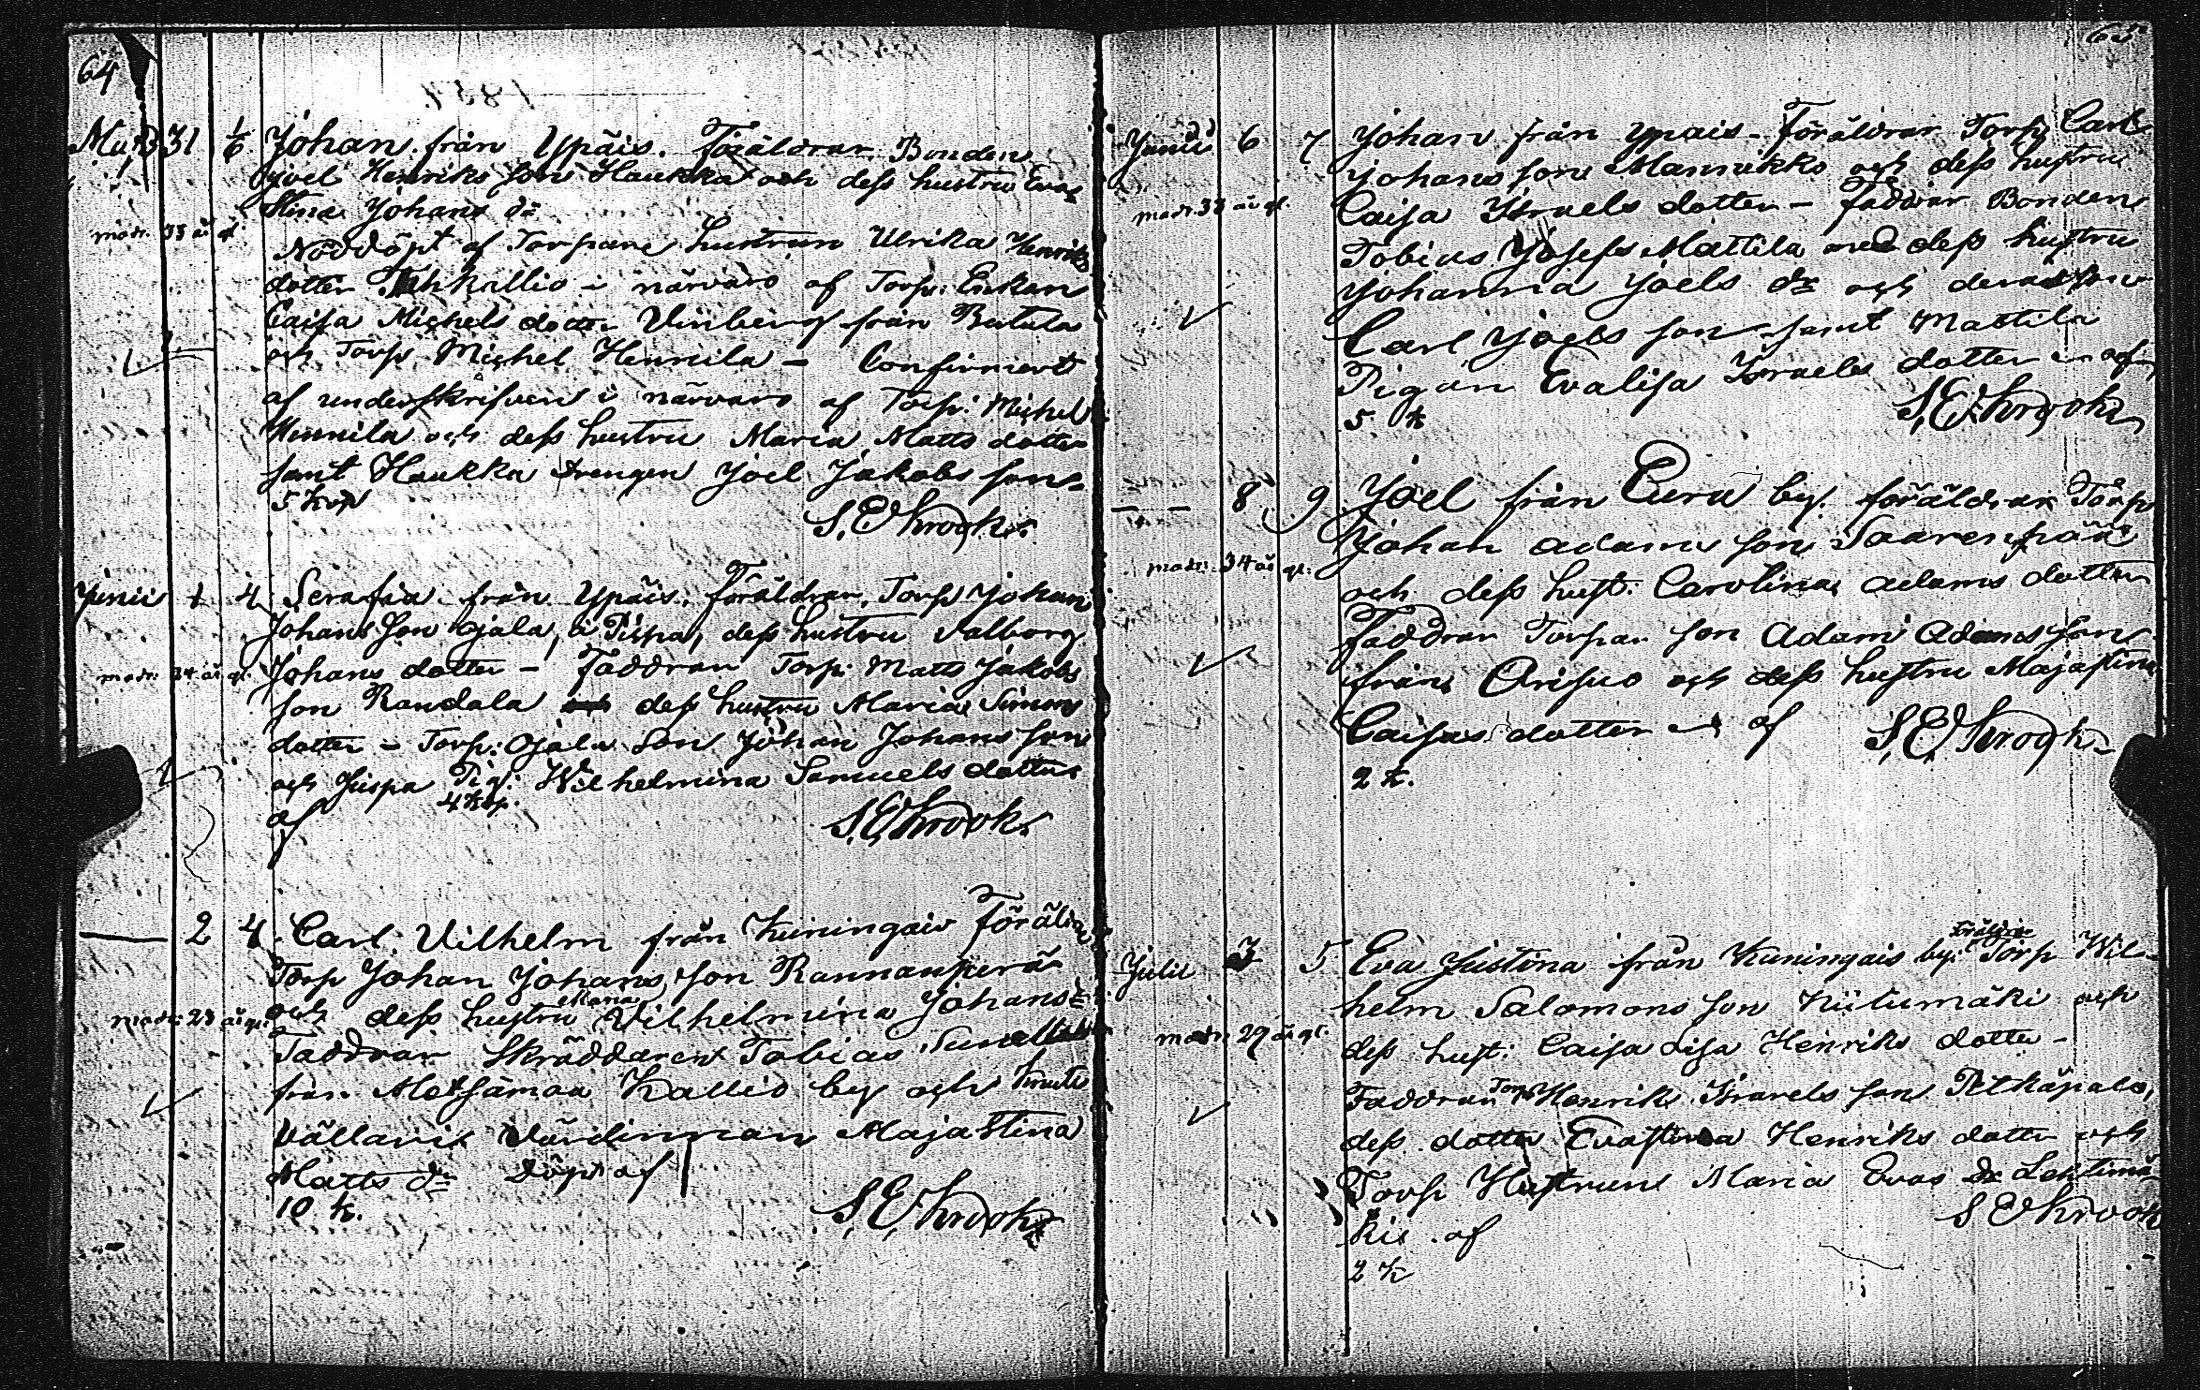 64
Maji 31 1/6 Johan från Ypäis. Föräldrar. Bonden
Joel Henriks son Haukka och dess hustru Eva
Stina Johans dr
modr. 33 år gl.
Nöddöpt af Torpare hustrun Ulrika Henriks
dotter i närvaro af Torp: Enkan
Caisa Michels dotter Vinberg från
och Torp Michel Hennila – Confirmert
af underskrifven i närvaro af Torp: Michel
Hennila och dess hustru Maria Matts dotter
samt Haukka drengen Joel Jakobs son
5 kop
S. E. Krook.
Junii 1 4 Serafia från Ypäis, föräldrar, Torp Johan
Johans son Ojala, dess hustru Valborg
modr. 24 år gl. Johans dotter – Faddrar Torp: Matts Jakobs
son Randala dess hustru Maria Simons
dotter – Torp: Ojala Son Johan Johans son
och Pig: Wilhelmina Samuels dotter
4 kop.
af
S. E. Krook.
— 2 4 Carl Vilhelm från Kuningais Föräldrar
Torp Johan Johans son Rannanperä
Maria
och dess hustru Vilhelmina Johans dr
modr. 23 år gl.
Faddrar Skräddaren Tobias
från Metsämaa Kallio by och
Vällaris Värdinnan Maja Stina
Matts dr döpt af
10 k.
S. E. Krook
65
Junii 6 7 Johan från Ypais – Föräldrar Torp Carl
Johans son Mannikko och dess hustru
modr. 33 år gl. Caisa Israels dotter – faddrar Bonden
Tobias Josefs Mattila med dess hustru
Johanna Joels dr och deras son
Carl Joels son samt Mattila
Pigan Evalisa Israels dotter – af
5 k
S. E. Krook
— — 8 9 Joel från Eura by. föräldrar Torp
Johan Adams son Saarenpää
modr. 34 år gl.
och dess hust. Carolina Adams dotter
Faddrar Torpar son Adam Adams son
från Arisuo och dess hustru Majastina
Caisas dotter – af
S. E. Krook
2 k.
föräldrar
Julii 3 5 Eva Justina från Kuningais by: Torp Wil-
helm Salomons son Niitumäki och
modr. 29 år gl. dess hust: Caisa Lisa Henriks dotter –
Faddrar Torp Henrik Israels son
dess dotter Evastina Henriks dotter och
Torp Hustrun Maria Evas dr Lehtimä
kis af
S E Krook
2 k